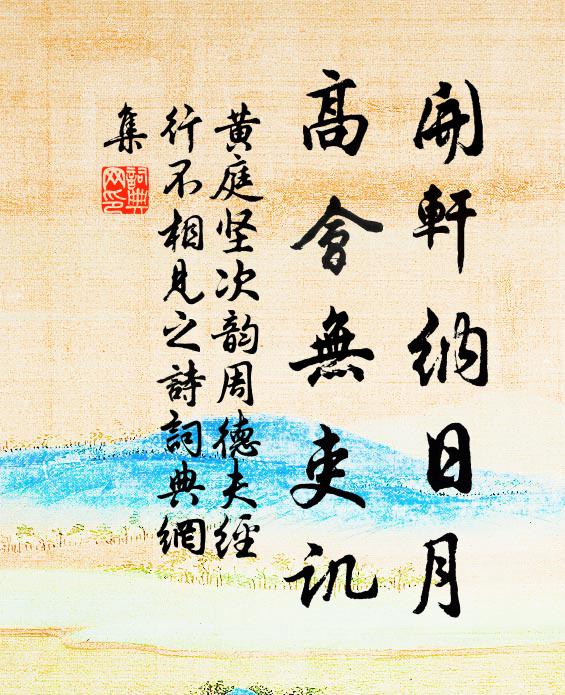 開軒納日月
高會無吏訊
黄庭坚次韵周德夫經
行不相見之詩詞典網
集
詞典
网印